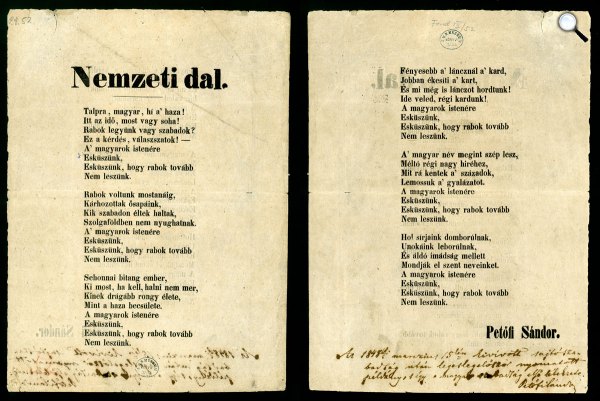 Nemzeti dal.
Talpra, magyar, hí a' haza!
Itt az idő, most vagy soha!
Rabok legyünk vagy szabadok?
Ez a' kérdés, válaszszatok! —
A' magyarok istenére
Esküszünk,
Esküszünk, hogy rabok tovább
Nem leszünk.
Rabok voltunk mostanáig,
Kárhozottak ősapáink,
Kik szabadon éltek haltak,
Szolgaföldben nem nyughatnak.
A' magyarok istenére
Esküszünk,
Esküszünk, hogy rabok tovább
Nem leszünk.
Sehonnai bitang ember,
Ki most, ha kell, halni nem mer,
Kinek drágább rongy élete,
Mint a haza becsülete.
A magyarok istenére
Esküszünk,
Esküszünk, hogy rabok tovább
Nem leszünk.
Fényesebb a' láncznál a' kard,
Jobban ékesíti a' kart,
És mi még is lánczot hordtunk!
Ide veled, régi kardunk!
A magyarok istenére
Esküszünk,
Esküszünk, hogy rabok tovább
Nem leszünk.
A' magyar név megint szép lesz,
Méltó régi nagy hiréhez,
Mit rá kentek a' századok,
Lemossuk a' gyalázatot.
A magyarok istenére
Esküszünk,
Esküszünk, hogy rabok tovább
Nem leszünk.
Hol sirjaink domborúlnak,
Unokáink leborúlnak,
És áldó imádság mellett
Mondják el szent neveinket.
A magyarok istenére
Esküszünk,
Esküszünk, hogy rabok tovább
Nem leszünk.
Petőfi Sándor.
Az 1848ki marczius 15kén kivívott sajtósza-
badság után legeslegelőször nyomatott
példány, s így a magyar szabadság első lélekzete.
Petőfi Sándor